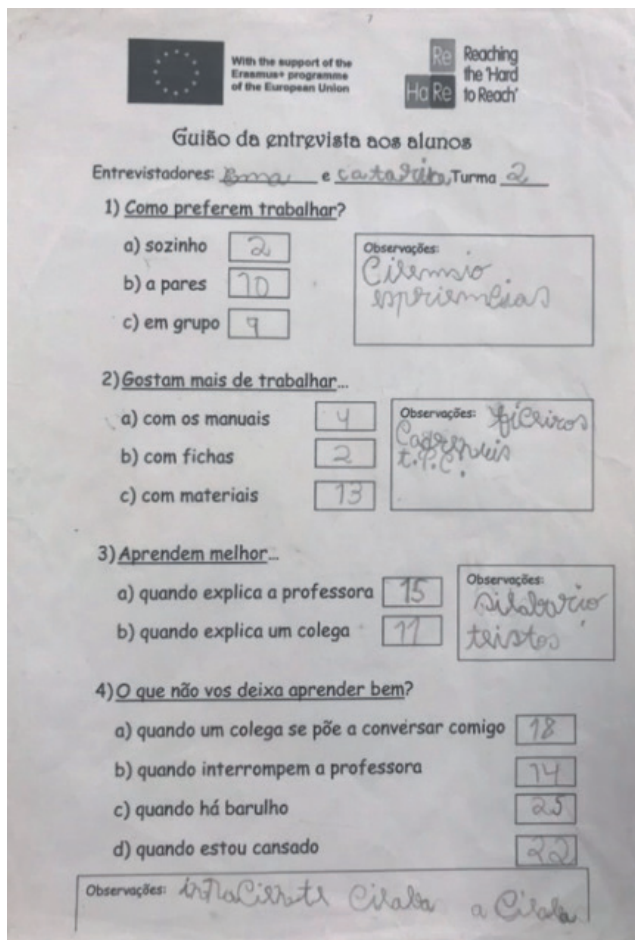 With the support of the
Erasmus+ programme
of the European Union
Re Reaching
the 'Hard
HaRe to Reach'
Guião da entrevista aos alunos
Entrevistadores: Ema e catarina Turma 2
1) Como preferem trabalhar?
a) sozinho 2
b) a pares 10
c) em grupo 9
Observações:
Cilemsio
espriemcias
2) Gostam mais de trabalhar...
a) com os manuais 4
b) com fichas 2
c) com materiais 13
Observações: ficeiros
t.P.C.
3) Aprendem melhor...
a) quando explica a professora 15
b) quando explica um colega 11
Observações:
silabario
teistos
4) O que não vos deixa aprender bem?
a) quando um colega se põe a conversar comigo 18
b) quando interrompem a professora 14
c) quando há barulho 25
d) quando estou cansado 22
Observações: Cilaba a Cilaba